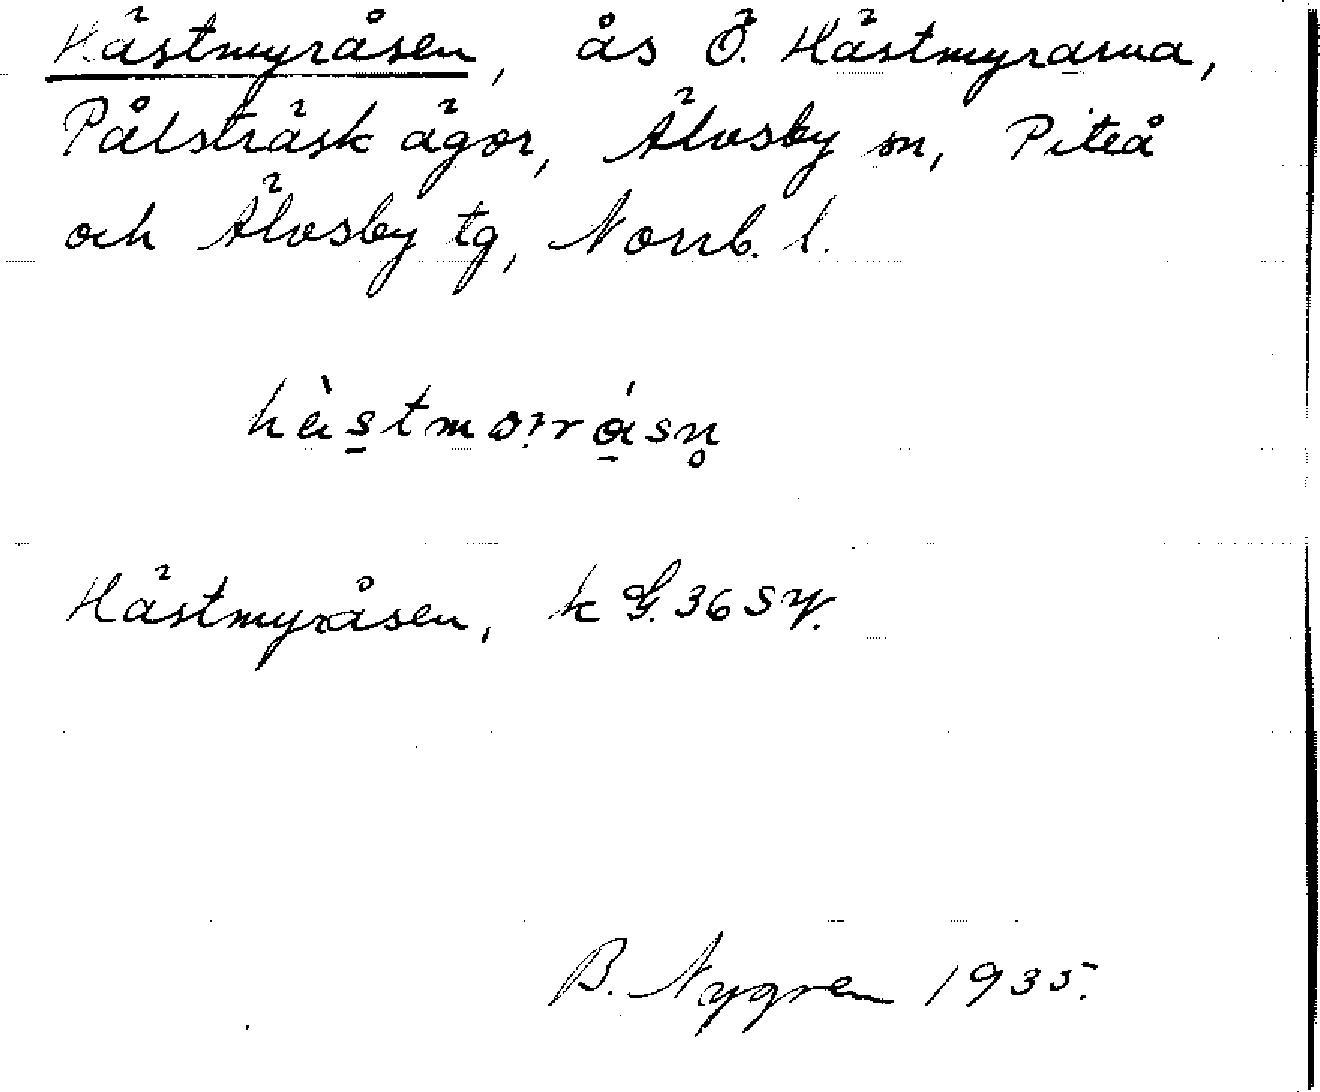 Hästmyråsen, ås Ö. Hästmyrarna,
Pålsträsk ägor, Älvsby sn, Piteå
och Älvsby tg, Norrb. l.
Hästmyråsen, k G. 36 SV.
B. Nygren 1935.